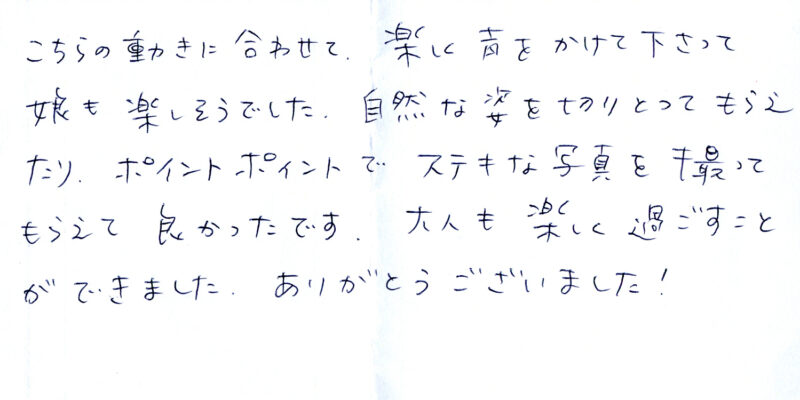 こちらの動きに合わせて、楽しく声をかけて下さって
娘も楽しそうでした。自然な姿を切りとってもらえ
たり、ポイントポイントでステキな写真を撮って
もらえて良かったです。大人も楽しく過ごすこと
ができました。ありがとうございました!